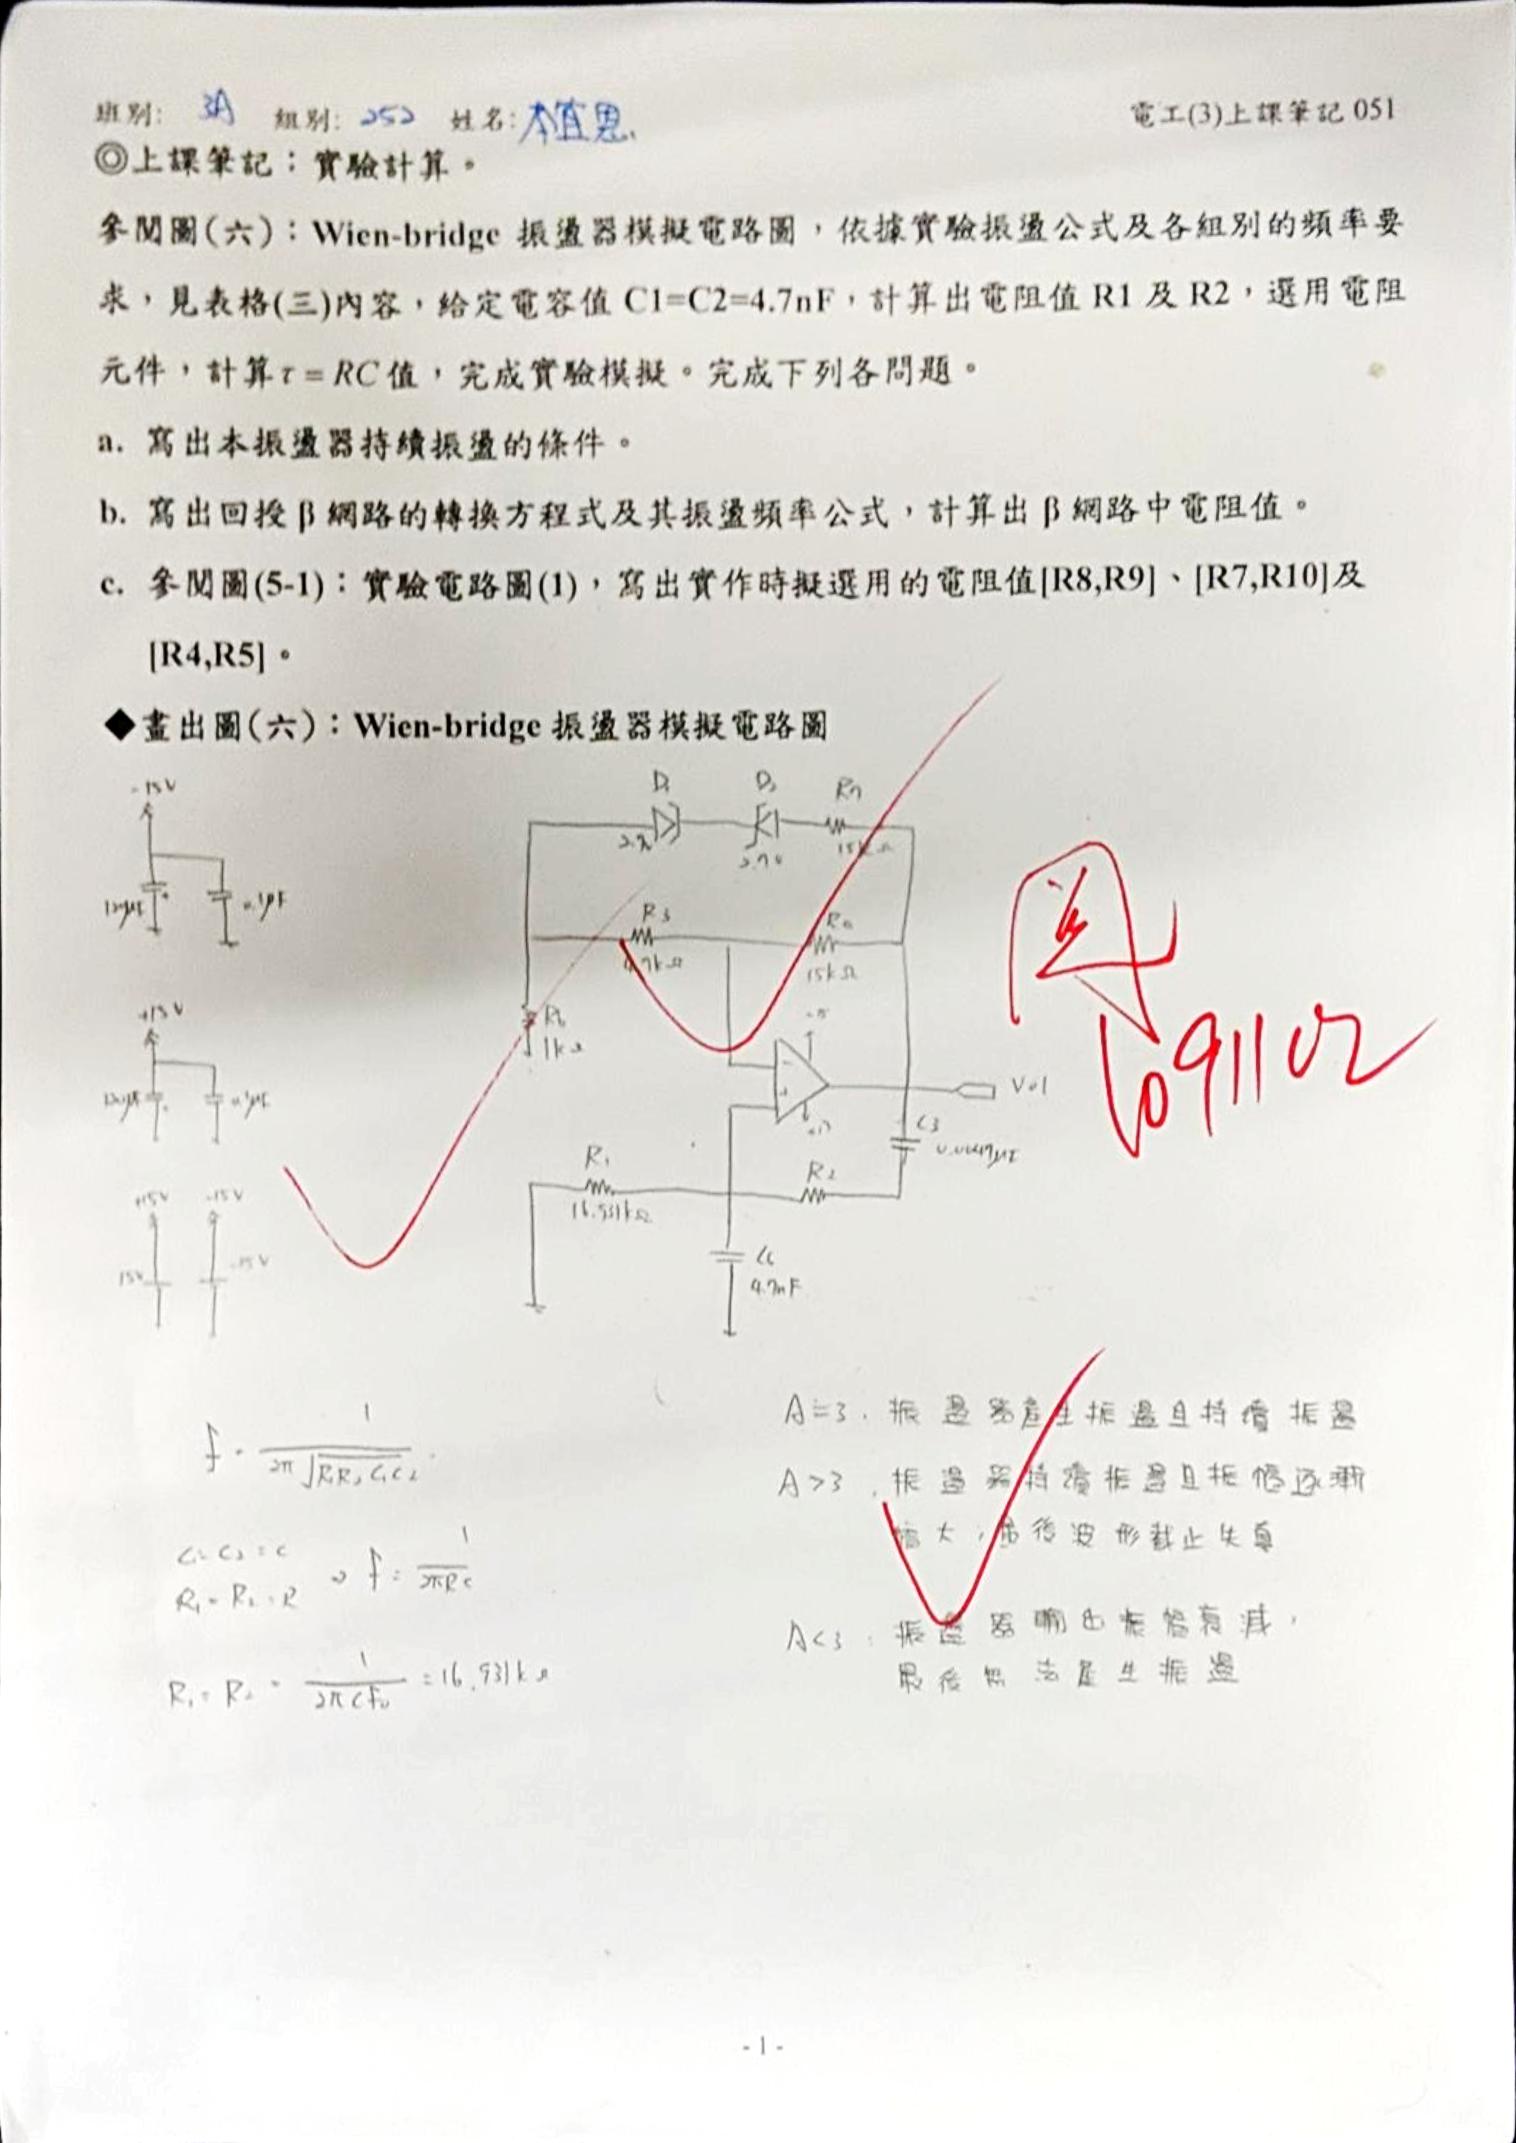 班別: 3A 組別: 252 姓名:
電工(3)上課筆記 051
◎上課筆記：實驗計算。
參閱圖(六)：Wien-bridge 振盪器模擬電路圖，依據實驗振盪公式及各組別的頻率要
求，見表格(三)內容，給定電容值 C1=C2=4.7nF，計算出電阻值 R1 及 R2，選用電阻
元件，計算τ=RC值，完成實驗模擬。完成下列各問題。
a. 寫出本振盪器持續振盪的條件。
b. 寫出回授 β 網路的轉換方程式及其振盪頻率公式，計算出 β 網路中電阻值。
c. 參閱圖(5-1)：實驗電路圖(1)，寫出實作時擬選用的電阻值[R8,R9]、[R7,R10]及
[R4,R5]。
◆畫出圖(六)：Wien-bridge 振盪器模擬電路圖
-15V
D1
R7
15kΩ
R3
4.7kΩ
15kΩ
1kΩ
+15V
Vo1
C3
R1
16.931kΩ
R2
4.7nF
+15V -15V
15V -15V
f = 1 / 2π√R1R2C1C2
C1=C2=C
R1=R2=R
f = 1 / 2πRC
R1=R2= 1 / 2πCFo = 16.931kΩ
A≒3, 振盪器產生振盪且持續振盪
A>3, 振盪器持續振盪且振幅逐漸
增大,最後波形截止失真
A<3, 振盪器輸出振幅衰減,
最後無法產生振盪
1091102
- 1 -